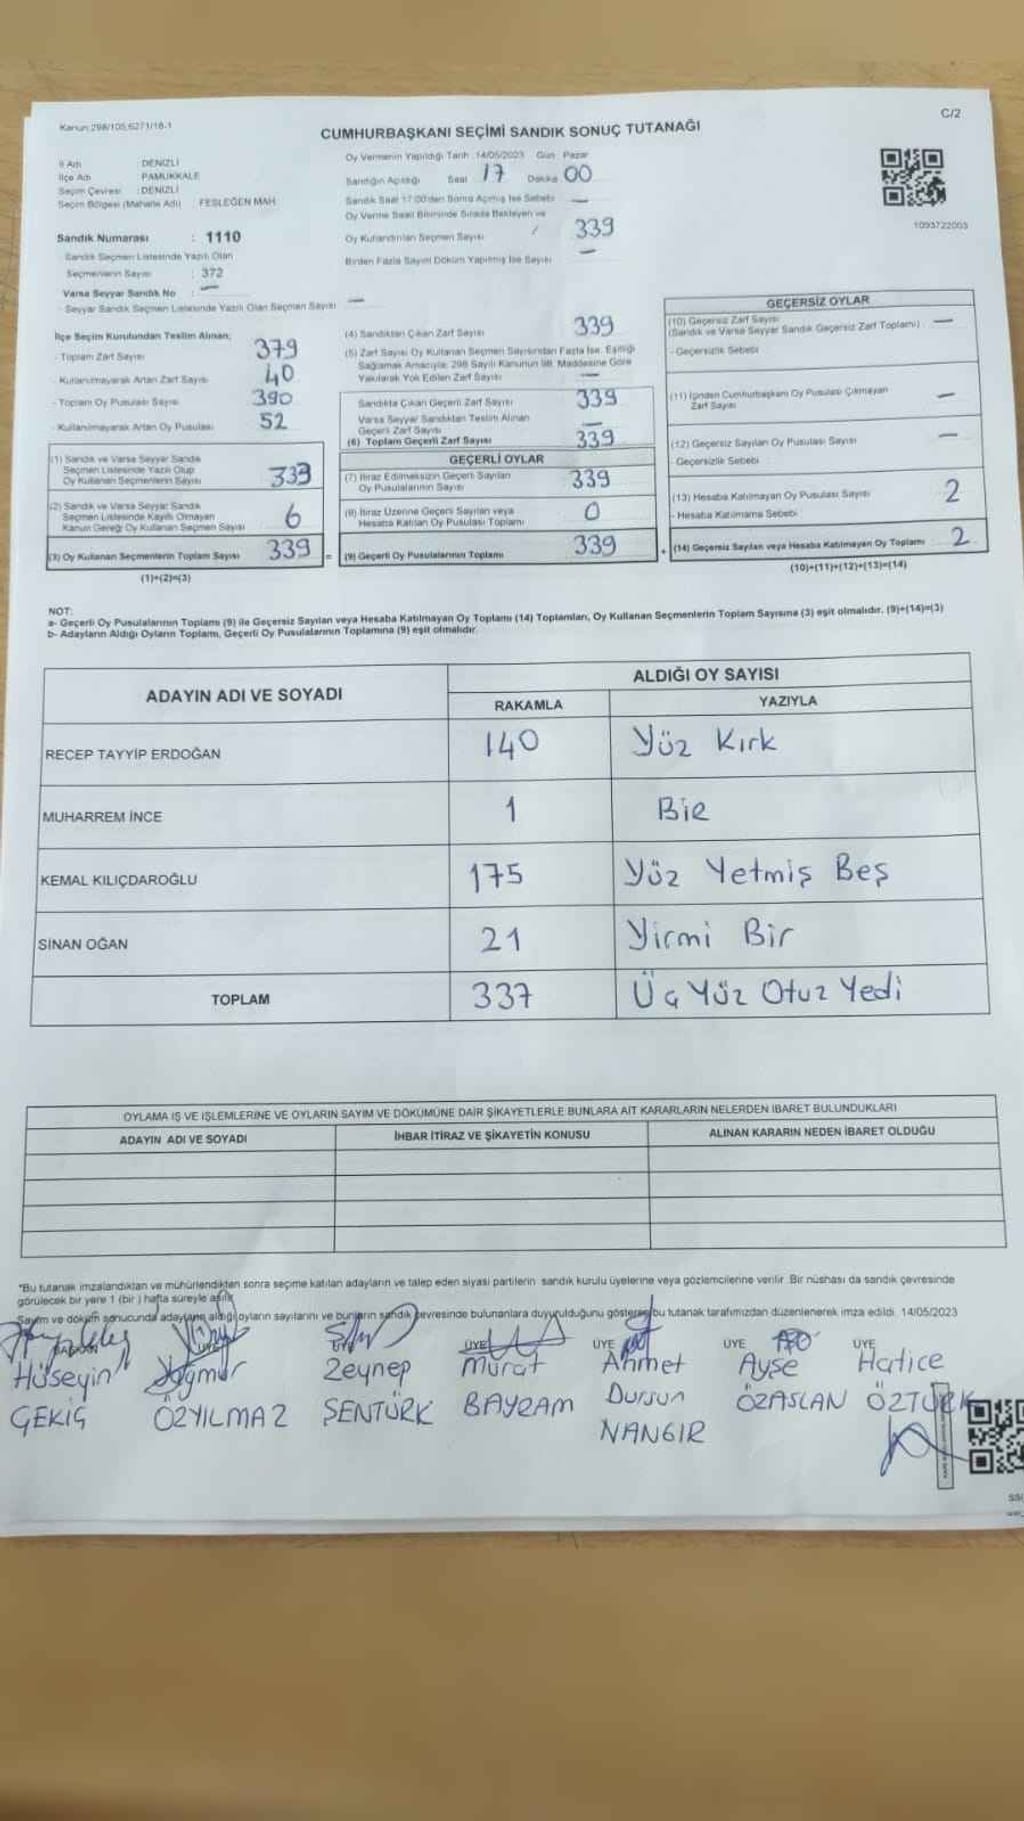 Kanun:298/105;6271/18-1
C/2
CUMHURBAŞKANI SEÇİMİ SANDIK SONUÇ TUTANAĞI
İl Adı DENİZLİ
İlçe Adı PAMUKKALE
Seçim Çevresi : DENİZLİ
Seçim Bölgesi (Mahalle Adı) : FESLEĞEN MAH.
Sandık Numarası : 1110
Sandık Seçmen Listesinde Yazılı Olan
Seçmenlerin Sayısı : 372
Varsa Seyyar Sandık No : —
- Seyyar Sandık Seçmen Listesinde Yazılı Olan Seçmen Sayısı —
Oy Vermenin Yapıldığı Tarih : 14/05/2023 Gün : Pazar
Sandığın Açıldığı Saat 17 Dakika 00
Sandık Saat 17:00'den Sonra Açılmış İse Sebebi —
Oy Verme Saati Bitiminde Sırada Bekleyen ve
Oy Kullandırılan Seçmen Sayısı / 339
Birden Fazla Sayım Döküm Yapılmış İse Sayısı —
1093722003
İlçe Seçim Kurulundan Teslim Alınan;
- Toplam Zarf Sayısı 379
- Kullanılmayarak Artan Zarf Sayısı 40
- Toplam Oy Pusulası Sayısı 390
- Kullanılmayarak Artan Oy Pusulası 52
(1) Sandık ve Varsa Seyyar Sandık
Seçmen Listesinde Yazılı Olup
Oy Kullanan Seçmenlerin Sayısı 333
(2) Sandık ve Varsa Seyyar Sandık
Seçmen Listesinde Kayıtlı Olmayan
Kanun Gereği Oy Kullanan Seçmen Sayısı 6
(3) Oy Kullanan Seçmenlerin Toplam Sayısı 339 =
(1)+(2)=(3)
(4) Sandıktan Çıkan Zarf Sayısı 339
(5) Zarf Sayısı Oy Kullanan Seçmen Sayısından Fazla İse, Eşitliği
Sağlamak Amacıyla; 298 Sayılı Kanunun 98. Maddesine Göre
Yakılarak Yok Edilen Zarf Sayısı —
Sandıkta Çıkan Geçerli Zarf Sayısı 339
Varsa Seyyar Sandıktan Teslim Alınan
Geçerli Zarf Sayısı —
(6) Toplam Geçerli Zarf Sayısı 339
GEÇERLİ OYLAR
(7) İtiraz Edilmeksizin Geçerli Sayılan
Oy Pusulalarının Sayısı 339
(8) İtiraz Üzerine Geçerli Sayılan veya
Hesaba Katılan Oy Pusulası Toplamı 0
(9) Geçerli Oy Pusulalarının Toplamı 339 +
GEÇERSİZ OYLAR
(10) Geçersiz Zarf Sayısı
(Sandık ve Varsa Seyyar Sandık Geçersiz Zarf Toplamı) —
- Geçersizlik Sebebi
(11) İçinden Cumhurbaşkanı Oy Pusulası Çıkmayan
Zarf Sayısı —
(12) Geçersiz Sayılan Oy Pusulası Sayısı —
- Geçersizlik Sebebi
(13) Hesaba Katılmayan Oy Pusulası Sayısı 2
- Hesaba Katılmama Sebebi
(14) Geçersiz Sayılan veya Hesaba Katılmayan Oy Toplamı 2
(10)+(11)+(12)+(13)=(14)
NOT:
a- Geçerli Oy Pusulalarının Toplamı (9) ile Geçersiz Sayılan veya Hesaba Katılmayan Oy Toplamı (14) Toplamları, Oy Kullanan Seçmenlerin Toplam Sayısına (3) eşit olmalıdır. (9)+(14)=(3)
b- Adayların Aldığı Oyların Toplamı, Geçerli Oy Pusulalarının Toplamına (9) eşit olmalıdır.
ADAYIN ADI VE SOYADI
ALDIĞI OY SAYISI
RAKAMLA YAZIYLA
RECEP TAYYİP ERDOĞAN 140 Yüz Kırk
MUHARREM İNCE 1 Bir
KEMAL KILIÇDAROĞLU 175 Yüz Yetmiş Beş
SİNAN OĞAN 21 Yirmi Bir
TOPLAM 337 Üç Yüz Otuz Yedi
OYLAMA İŞ VE İŞLEMLERİNE VE OYLARIN SAYIM VE DÖKÜMÜNE DAİR ŞİKAYETLERLE BUNLARA AİT KARARLARIN NELERDEN İBARET BULUNDUKLARI
ADAYIN ADI VE SOYADI İHBAR İTİRAZ VE ŞİKAYETİN KONUSU ALINAN KARARIN NEDEN İBARET OLDUĞU
*Bu tutanak imzalandıktan ve mühürlendikten sonra seçime katılan adayların ve talep eden siyasi partilerin sandık kurulu üyelerine veya gözlemcilerine verilir. Bir nüshası da sandık çevresinde
görülecek bir yere 1 (bir ) hafta süreyle asılır.
Sayım ve döküm sonucunda adayların aldığı oyların sayılarını ve bunların sandık çevresinde bulunanlara duyurulduğunu gösteren bu tutanak tarafımızdan düzenlenerek imza edildi. 14/05/2023
BAŞKAN ÜYE ÜYE ÜYE ÜYE ÜYE ÜYE
Hüseyin Yağmur Zeynep Murat Ahmet Ayşe Hatice
GEKİÇ ÖZYILMAZ ŞENTÜRK BAYRAM Dursun ÖZASLAN ÖZTÜRK
NANGIR